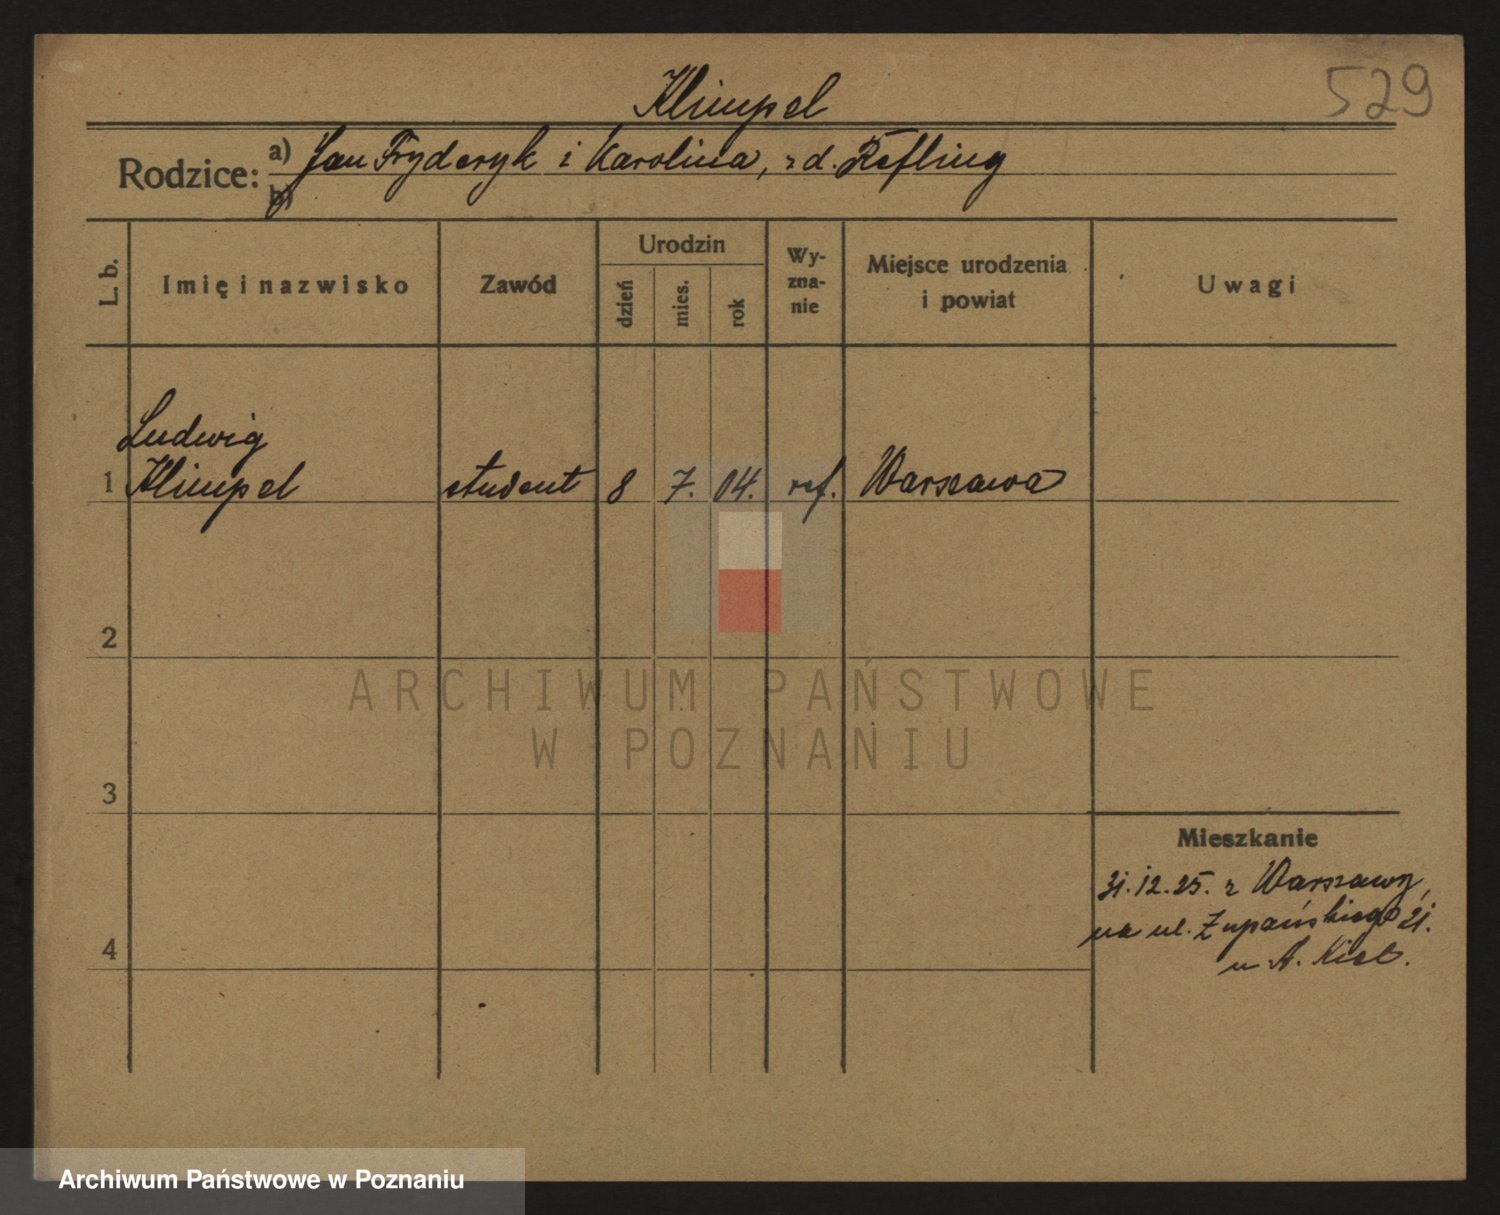 529
Klimpel
Rodzice: a) Jan Fryderyk i Karolina, z d. Refling
b)
L. b. Imię i nazwisko Zawód Urodzin dzień mies. rok Wy-zna-nie Miejsce urodzenia i powiat Uwagi
Ludwig
1 Klimpel student 8 7. 04. ref. Warszawa
2
ARCHIWUM PAŃSTWOWE
W POZNANIU
3
Mieszkanie
31.12.25. z Warszawy,
na ul. Żupańskiego 21.
4
u A.
Archiwum Państwowe w Poznaniu